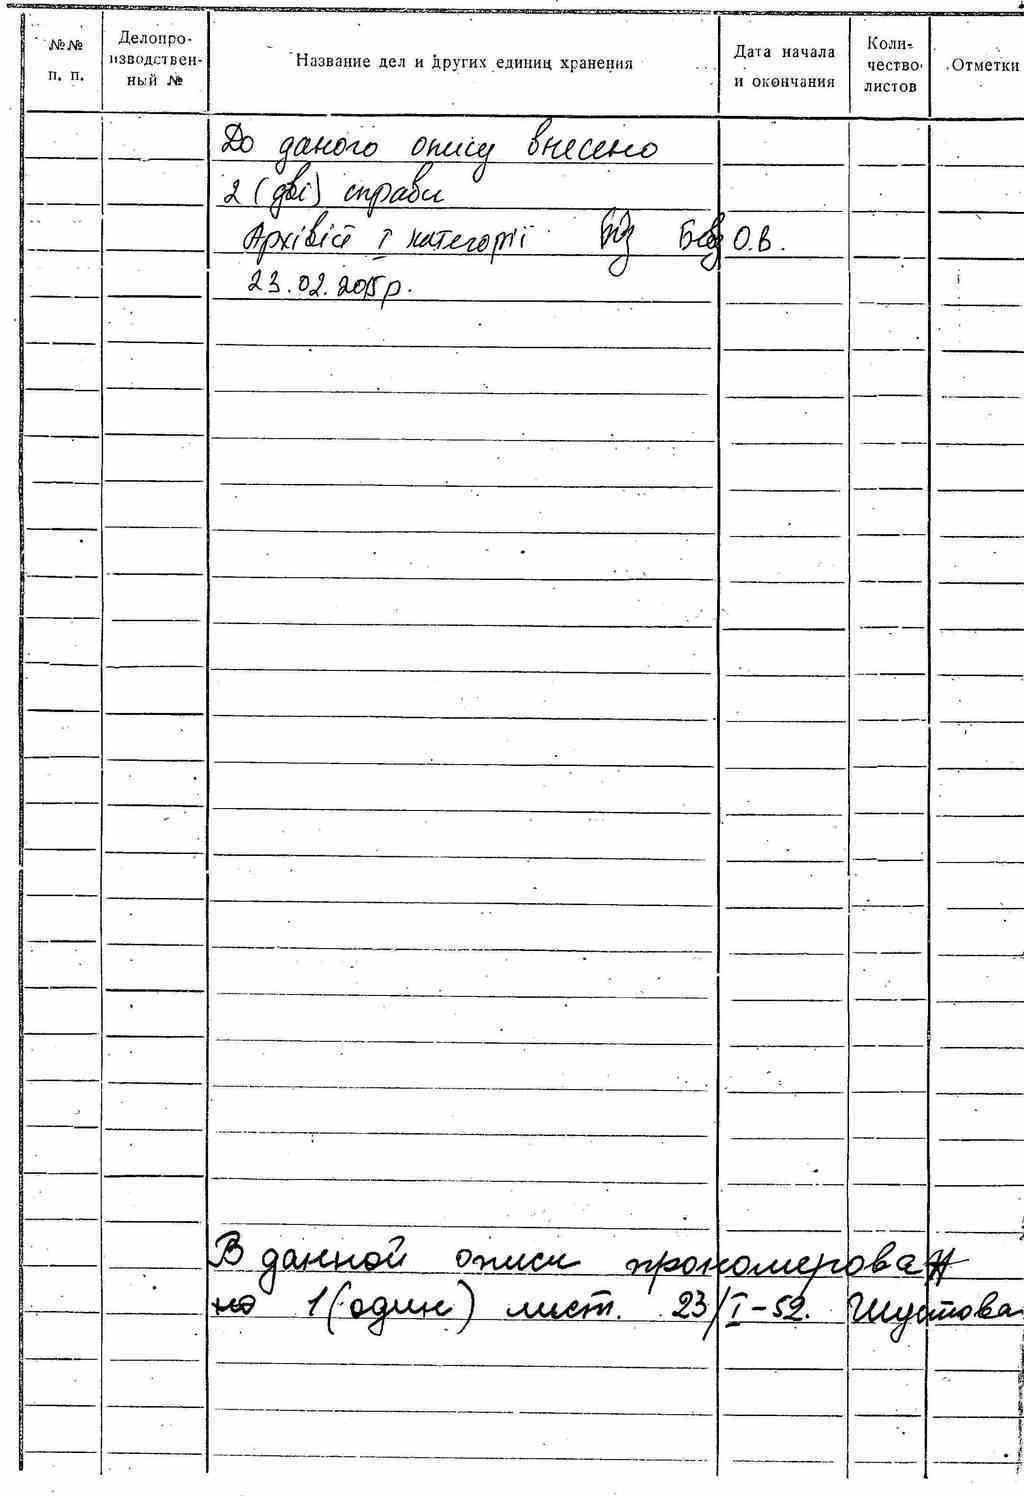 №№ п. п.
Делопро-
изводствен-
ный №
Название дел и других единиц хранения
Дата начала
и окончания
Коли-
чество
листов
Отметки
До даного опису внесено
2 (дві) справи
Архівіст I категорії О.В.
23.02.2015р.
В данной описи прономерован
но 1 (один) лист. 23/I-52. Шустова